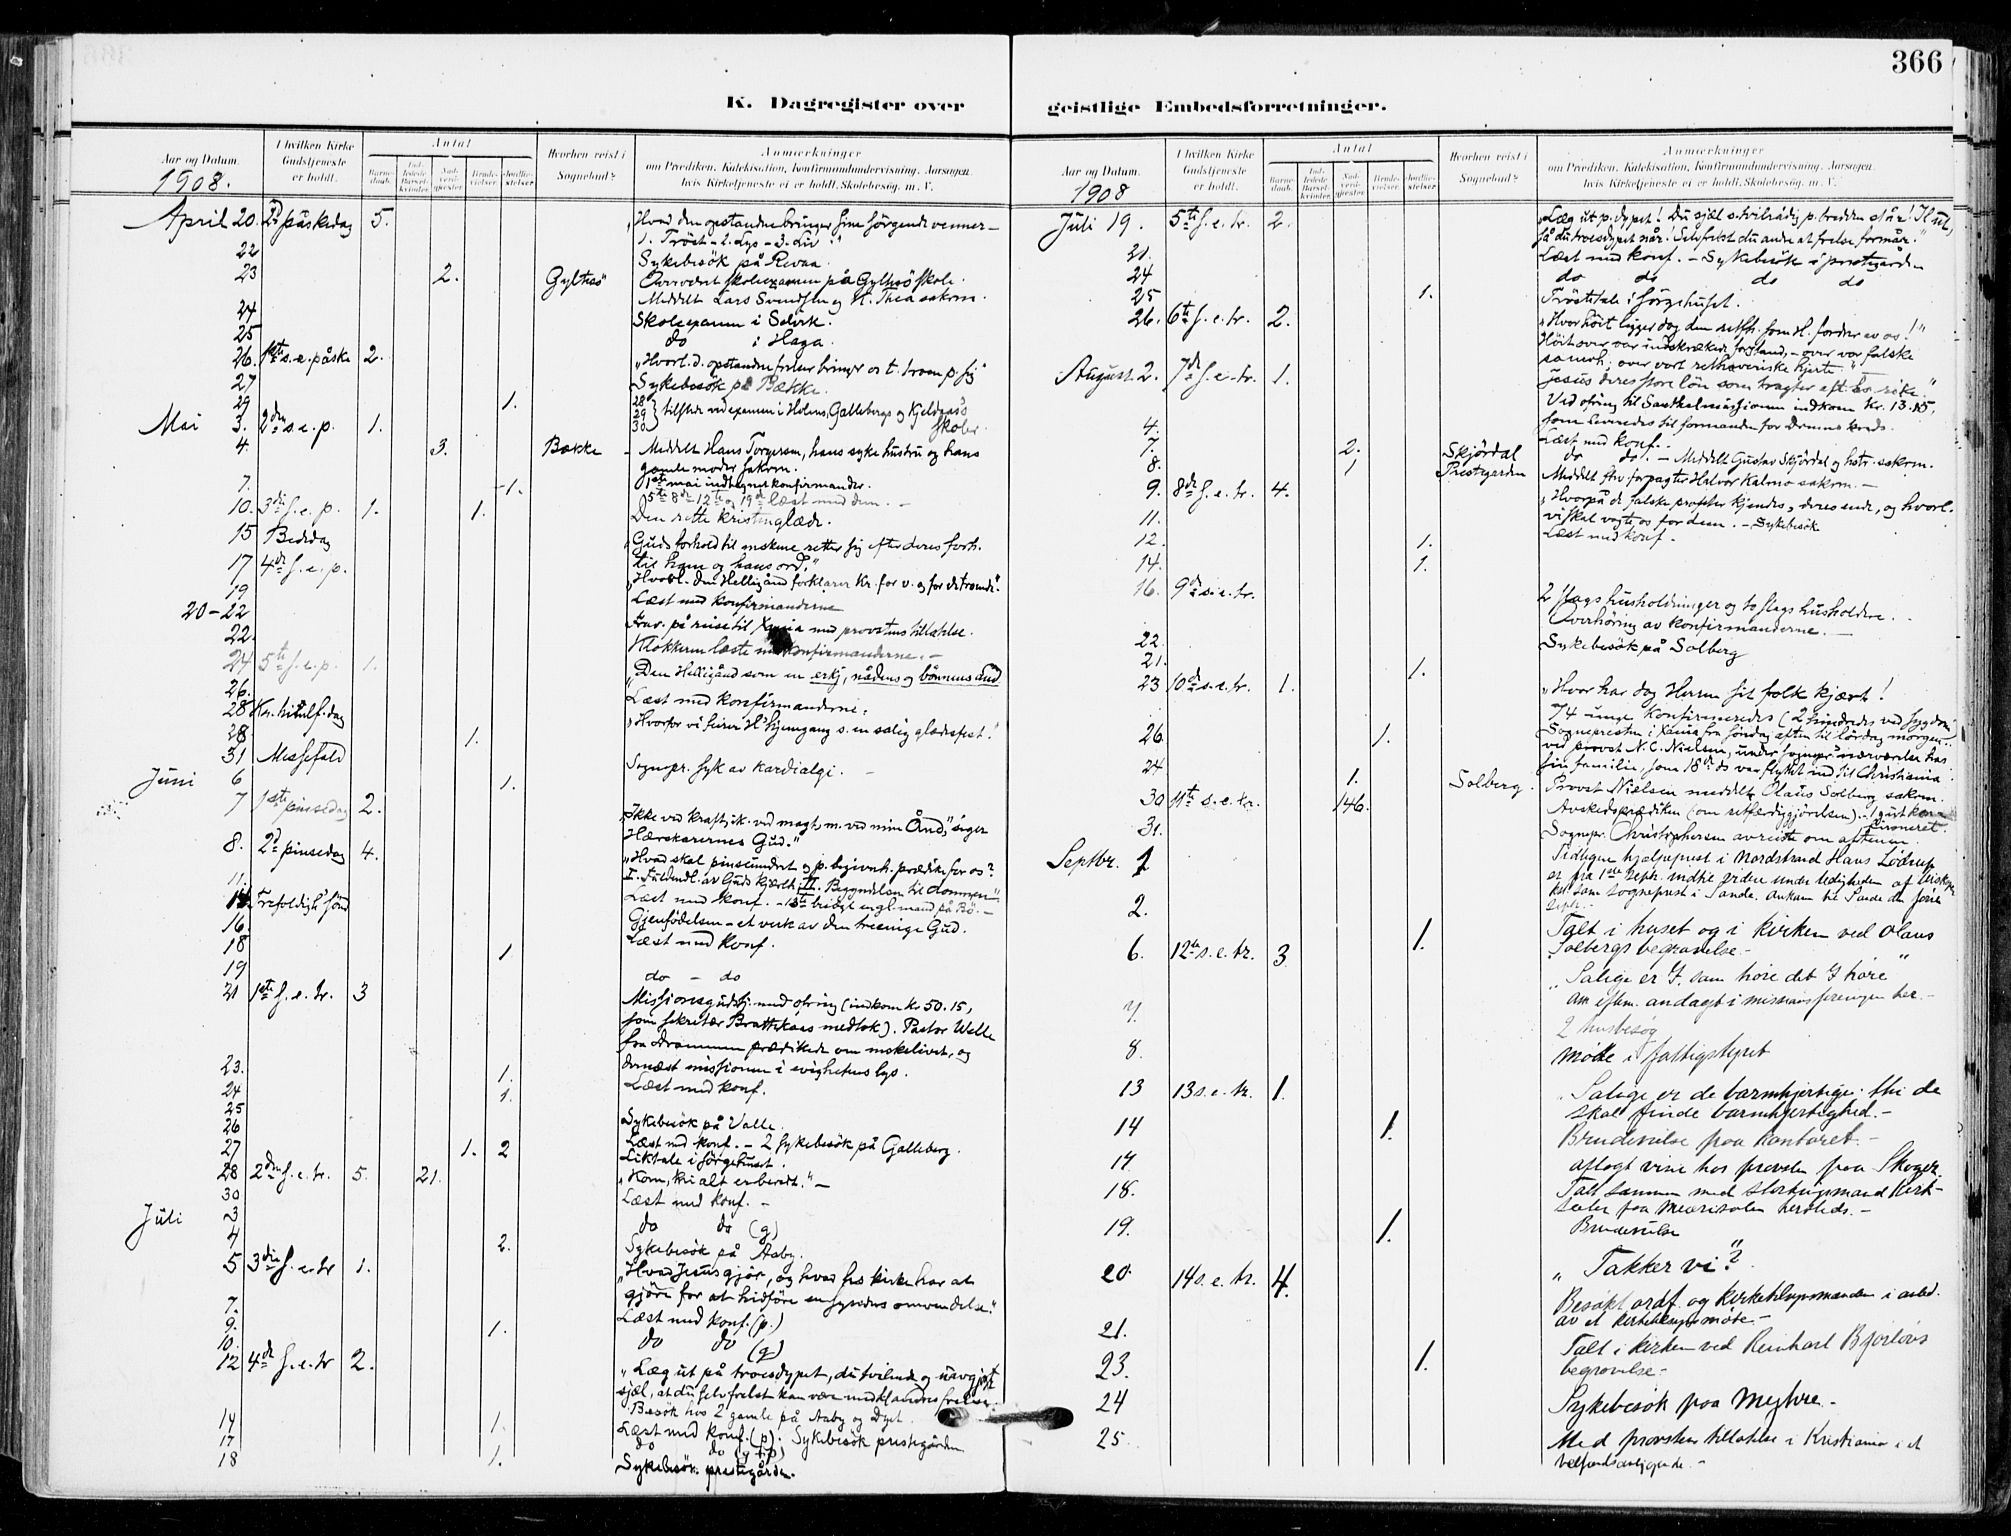 366
K. Dagregister over
geistlige Embedsforretninger.
Aar og Datum.
1908.
I hvilken Kirke Gudstjeneste er holdt.
Antal
Barnedaab.
Indledede Barselkvinder.
Nadverdgjester
Brudevielser
Hvorhen reist i Sognebud?
Anmærkninger
om Prædiken, Katekisation, Konfirmandundervisning, Aarsagen, hvis Kirketjeneste ei er holdt, Skolebesøg, m. V.
April 20. 2d påskedag 5. "Hvad den opstandne bringer sine sörgende venner –
1. Tröst – 2. Lys – 3. Liv."
22 Sykebesök på Revaa.
23 2. Gyltesö Overværet skoleexamen på Gyltesö skole.
Meddelt Lars Svendsen og H. Thea sakrm.
24 Skoleexamen i Selvik.
25 do i Haga.
26. 1ste s. e. påske 2. "Hvorl. d. opstandne frelser bringer os t. troen p. sig"
27 Sykebesök på Bække.
29 1. 28 29 30 } tilstede ved examen i Holms, Gallebergs og Kjeldaas's skoler.
Mai 3. 2den s. e. p. 1.
4. 3. Bække – Meddelt Hans Torgersen, hans syke hustru og hans
gamle moder sakrm.
7. 1. 1ste mai indtegnet konfirmander.
5te 8de 12te og 19de læst med dem. –
10. 3die s. e. p. 1. 1. Den rette kristenglæde.
15 Bededag "Guds forhold til mskene retter sig efter deres forh.
til ham og hans ord."
17 4de s. e. p. "Hvorl. den Helligånd forklarer Kr. for v. og for de troende."
19 Læst med konfirmanderne
20–22 Frav. på reise til Xania med provstens tilladelse.
22. Klokkeren læste m konfirmanderne. –
24 5te s. e. p. 1. "Den Helligånd som en erkj, nådens og bönnens Ånd
26. Læst med konfirmanderne.
28 Kr. himelf. dag "Hvorfor vi feirer H's hjemgang s. en salig glædesfest."
28. 1.
31 Messefald Sognepr. syk av kardialgi. –
Juni 6 1.
7 1ste pinsedag 2. "Ikke ved kraft, ik. ved magt, m. ved min Ånd," siger
Hærskarernes Gud."
8. 2d pinsedag 4. "Hvad skal pinseundret og p. begivenh. prædike for os?
I. Fuldendl. av Guds kjærlh. II. Begyndelsen til dommen".
11. Læst med konf. – 13de besögt engl. mand på Bö. –
14 Trefoldigh. sönd Gjenfödelsen – et verk av den treenige Gud.
16. Læst med konf.
18 1
19 do – do
21 1ste s. e. tr. 3 Missionsgudstj. med ofring (indkom kr. 50.15,
som sekretær Brattekaas medtok). Pastor Welle
fra Drammen prædikede om mskelivet, og
dernæst missionen i evighetens lys.
23. 1. Læst med konf.
24 1.
25 Sykebesök på Valle.
26 Læst md konf. – 2 sykebesök på Galleberg.
27 1. 2 Liktale i sörgehuset.
28 2den s. e. tr. 5. 21. "Kom, ti alt er beredt." –
30 Læst med konf. –
Juli 3 do do (g)
4 2. Sykebesök på Aaby.
5 3die s. e. tr 1. "Hvad Jesus gjör, og hvad hs kirke har at
gjöre for at hidföre en synders omvendelse."
7. Læst med konf. (p.)
9. 1.
10. do do (g)
12 4de s. e. tr 2. "Læg ut på troesdypet, du tvilende og uavgjorte
sjæl, at du selv frelst kan være med til andres frelse."
Besök hos 2 gamle på Aaby og Dyet.
14 1. Læst med konf. (p). Sykebesök prestegården
17 do do (g + p)
18 1. Sykebesök. prestegården.
Aar og Datum.
1908
I hvilken Kirke Gudstjeneste er holdt.
Antal
Barnedaab.
Indledede Barselkvinder.
Nadverdgjester
Brudevielser
Hvorhen reist i Sognebud?
Anmærkninger
om Prædiken, Katekisation, Konfirmandundervisning, Aarsagen, hvis Kirketjeneste ei er holdt, Skolebesøg, m. V.
Juli 19. 5te s. e. tr. 2. "Læg ut p. dypet! Du sjæl s. tvilrådig p. bredden står! Il ut,
så du troesdypet når! Selv frelst du andre at frelse formår."
21. Læst med konf. – Sykebesök i prestegården
24 do do do do
25 1. Tröstetale i sörgehuset.
26. 6te s. e. tr. 2. "Hvor höit ligger dog den retfh. som H. fordrer av os!"
Höit over vor indskrækede forstand, – over vor falske
samvh, over vort rethaveriske hjerte."
August 2. 7de s. e. tr. 1. Jesus deres store lön som tragter eft. Gs. rike."
Ved ofring til Santhalmissionen indkom kr. 13.15,
som leveredes til formanden for Drmns kreds.
4. Læst med konf. –
7. 2. Skjördal do do. – Meddelt Gustav Skjördal og hstr. sakrm.
8. 1 Prestegården Meddelt fhv. forpagter Halvor Kalmo sakrm. –
9. 8de s. e. tr. 4. "Hvorpå de falske profeter kjendes, deres ende, og hvorl.
vi skal vogte os for dem. – Sykebesök
11. Læst med konf. –
12. 1.
14. 1.
16. 9de s. e. tr. 2 slags husholdninger og to slags husholdere.
Overhöring av konfirmanderne. –
22. Sykebesök på Solberg
21. 1.
23 10de s. e. tr. 1. "Hvor har dog Herren sit folk kjært!
74 unge konfirmeredes
26 1. Sognepresten i Xania fra söndag aften til lördag morgen
ved provst N. C. Nielsen,
sin familie, som 18de ds var flyttet ind til Christiania
24 1. Solberg. Provst Nielsen meddelte Olaus Solberg sakrm.
30 11te s. e. tr. 146. Avskedsprædiken (om retfærdiggjörelsen). –
31. Sognepr. Christophersen avreiste om aftenen.
Septbr. 1 Tidligere hjælpeprest i Nordstrand Hans Lödrup
er fra 1ste septr. indtil videre under ledigheden af biskop
kst som sogneprest i Sande. Ankom til Sande den förie
septr. –
2. Talt i huset og i kirken ved Olaus
Solbergs begravelse –
6. 12te s. e. tr. 3 1. "Salige er I som höre det I höre"
Om eftm. andagt i missionsforeningen her. –
7. 2 husbesög
8. Möte i fattigstyret
13 13 s. e. tr. 1. "Salige er de barmhjertige: thi de
skal finde barmhjertighed. –
14 1. Brudevielse paa kontoret. –
17. Aflagt visit hos provsten paa Skoger.
18. Talt sammen med stortingsmand
hersteds. –
19. 1. Brudevielse
20. 14 s. e. tr. 4. "Takker vi?"
Besökt ordf. og kirketilsynsmanden i anled.
av et kirketilsynsmöte. –
21.
23. 1. Talt i kirken ved Reinhart Bjerlövs
begravelse –
24 Sykebesök paa –
25. Med provstens tilladelse i Kristiania i et
velferdsanliggende. –